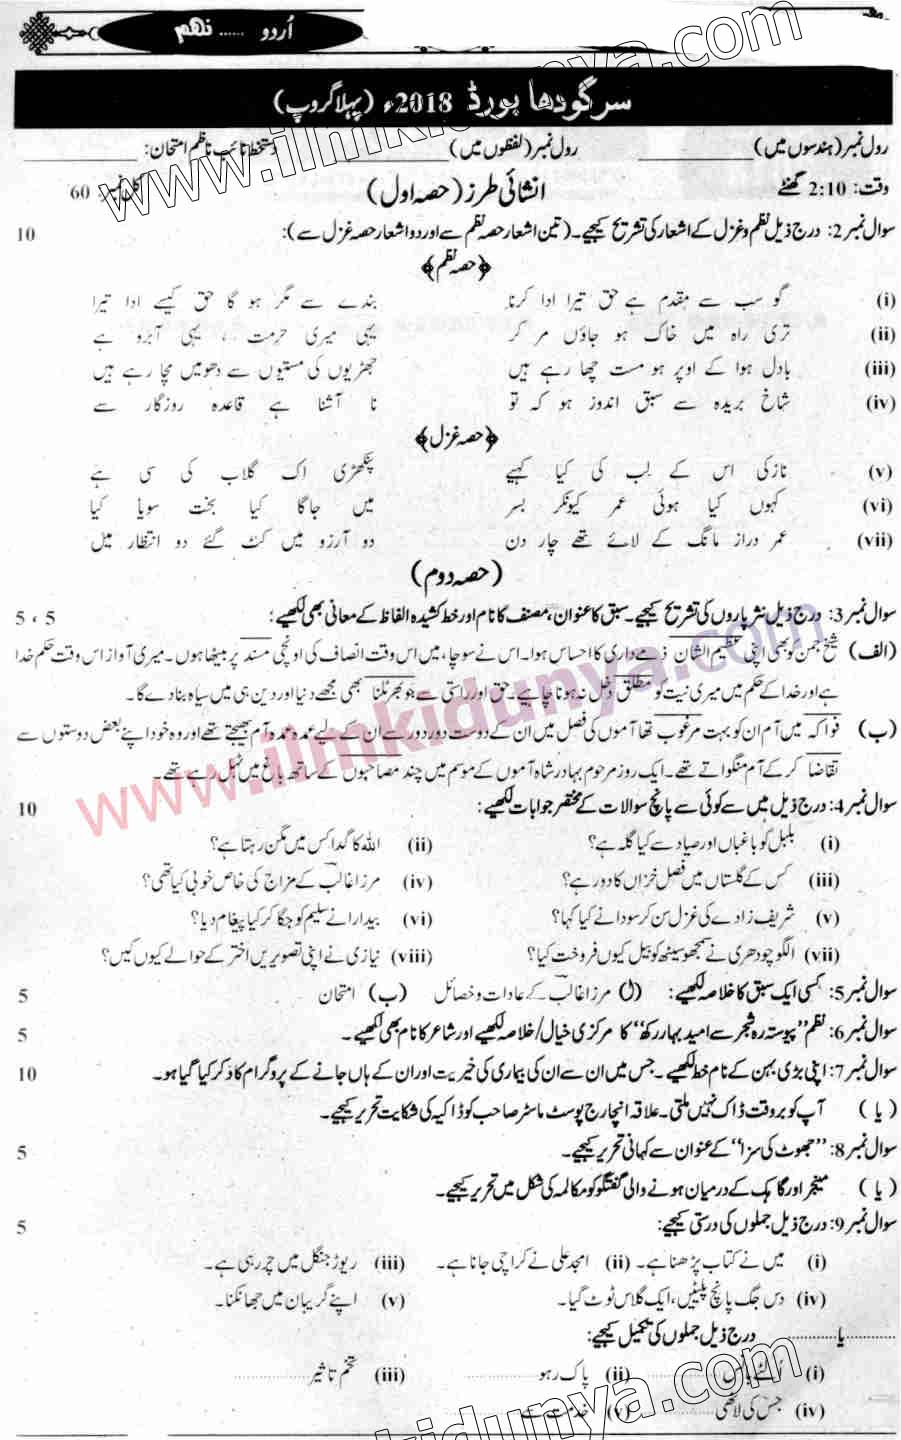 اُردو ...... نہم
سرگودھا بورڈ 2018ء (پہلا گروپ)
رول نمبر (ہندسوں میں) ____________ رول نمبر (لفظوں میں) ____________ دستخط نائب ناظم امتحان: ____________
وقت: 2:10 گھنٹے انشائی طرز (حصہ اول) کل نمبر: 60
سوال نمبر 2: درج ذیل نظم و غزل کے اشعار کی تشریح کیجیے۔ (تین اشعار حصہ نظم سے اور دو اشعار حصہ غزل سے): 10
﴿حصہ نظم﴾
(i) گو سب سے مقدم ہے حق تیرا ادا کرنا بندے سے مگر ہو گا حق کیسے ادا تیرا
(ii) تری راہ میں خاک ہو جاؤں مر کر یہی میری حرمت ، یہی آبرو ہے
(iii) بادل ہوا کے اوپر ہو مست چھا رہے ہیں جھڑیوں کی مستیوں سے دھومیں مچا رہے ہیں
(iv) شاخ بریدہ سے سبق اندوز ہو کہ تو نا آشنا ہے قاعدہ روزگار سے
﴿حصہ غزل﴾
(v) نازکی اس کے لب کی کیا کہیے پنکھڑی اک گلاب کی سی ہے
(vi) کہوں کیا ہوئی عمر کیونکر بسر میں جاگا کیا بخت سویا کیا
(vii) عمر دراز مانگ کے لائے تھے چار دن دو آرزو میں کٹ گئے دو انتظار میں
(حصہ دوم)
سوال نمبر 3: درج ذیل نثر پاروں کی تشریح کیجیے۔ سبق کا عنوان، مصنف کا نام اور خط کشیدہ الفاظ کے معانی بھی لکھیے: 5 ، 5
(الف) شیخ جمن کو بھی اپنی عظیم الشان ذمے داری کا احساس ہوا۔ اس نے سوچا، میں اس وقت انصاف کی اونچی مسند پر بیٹھا ہوں۔ میری آواز اس وقت حکم خدا
ہے اور خدا کے حکم میں میری نیت کو مطلق دخل نہ ہونا چاہیے۔ حق اور راستی سے جو بھر ٹلنا بھی مجھے دنیا اور دین ہی میں سیاہ بنا دے گا۔
(ب) فواکہ میں آم ان کو بہت مرغوب تھا آموں کی فصل میں ان کے دوست دور دور سے ان کے لیے عمدہ عمدہ آم بھیجتے تھے اور وہ خود اپنے بعض دوستوں سے
تقاضا کر کے آم منگواتے تھے۔ ایک روز مرحوم بہادر شاہ آموں کے موسم میں چند مصاحبوں کے ساتھ باغ میں ٹہل رہے تھے۔
سوال نمبر 4: درج ذیل میں سے کوئی سے پانچ سوالات کے مختصر جوابات لکھیے: 10
(i) بلبل کو باغباں اور صیاد سے کیا گلہ ہے؟ (ii) اللہ کا گدا کس میں مگن رہتا ہے؟
(iii) کس کے گلستاں میں فصل خزاں کا دور ہے؟ (iv) مرزا غالب کے مزاج کی خاص خوبی کیا تھی؟
(v) شریف زادے کی غزل سن کر سودا نے کیا کہا؟ (vi) بیدارا نے سلیم کو جگا کر کیا پیغام دیا؟
(vii) الگو چودھری نے سمجھو سیٹھ کو بیل کیوں فروخت کیا؟ (viii) نیازی نے اپنی تصویریں اختر کے حوالے کیوں کیں؟
سوال نمبر 5: کسی ایک سبق کا خلاصہ لکھیے: (ا) مرزا غالب کے عادات و خصائل (ب) امتحان 5
سوال نمبر 6: نظم "پیوستہ رہ شجر سے امید بہار رکھ" کا مرکزی خیال/خلاصہ لکھیے اور شاعر کا نام بھی لکھیے۔ 5
سوال نمبر 7: اپنی بڑی بہن کے نام خط لکھیے۔ جس میں ان سے ان کی بیماری کی خیریت اور ان کے ہاں جانے کے پروگرام کا ذکر کیا گیا ہو۔ 10
(یا) آپ کو بروقت ڈاک نہیں ملتی۔ علاقہ انچارج پوسٹ ماسٹر صاحب کو ڈاکیہ کی شکایت تحریر کیجیے۔
سوال نمبر 8: "جھوٹ کی سزا" کے عنوان سے کہانی تحریر کیجیے۔ 5
(یا) مینجر اور گاہک کے درمیان ہونے والی گفتگو کو مکالمہ کی شکل میں تحریر کیجیے۔
سوال نمبر 9: درج ذیل جملوں کی درستی کیجیے: 5
(i) میں نے کتاب پڑھنا ہے۔ (ii) امجد علی نے کراچی جانا ہے۔ (iii) ریوڑ جنگل میں چر رہی ہے۔
(iv) دس جگ پانچ پلیٹیں، ایک گلاس ٹوٹ گیا۔ (v) اپنے گریبان میں جھانکنا۔
..........یا.......... درج ذیل جملوں کی تکمیل کیجیے:
(i) اُلٹے بانس .......... (ii) پاک رہو .......... (iii) تخم تاثیر ..........
(iv) جس کی لاٹھی .......... (v) خدمت سے ..........
www.ilmkidunya.com
www.ilmkidunya.com